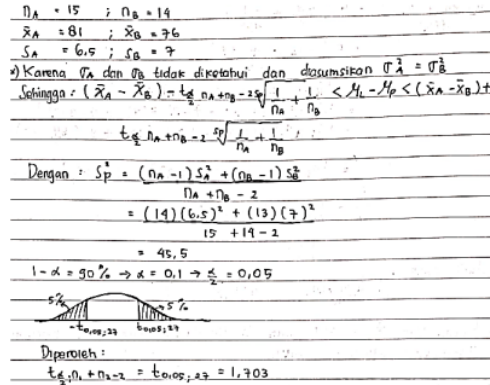 n_A = 15 ; n_B = 14
x̄_A = 81 ; x̄_B = 76
S_A = 6,5 ; S_B = 7
*) Karena σ_A dan σ_B tidak diketahui dan diasumsikan σ_A² = σ_B²
Sehingga : (x̄_A - x̄_B) - t_α/2 n_A+n_B-2 sp √(1/n_A + 1/n_B) < μ_L - μ_p < (x̄_A - x̄_B) +
t_α/2 n_A+n_B-2 sp √(1/n_A + 1/n_B)
Dengan : S_p² = (n_A - 1) S_A² + (n_B - 1) S_B²
n_A + n_B - 2
= (14)(6,5)² + (13)(7)²
15 + 14 - 2
= 45,5
1 - α = 90 % → α = 0,1 → α/2 = 0,05
5% 5 %
-t_0,05;27 t_0,05;27
Diperoleh :
t_α/2; n_1 + n_2-2 = t_0,05; 27 = 1,703